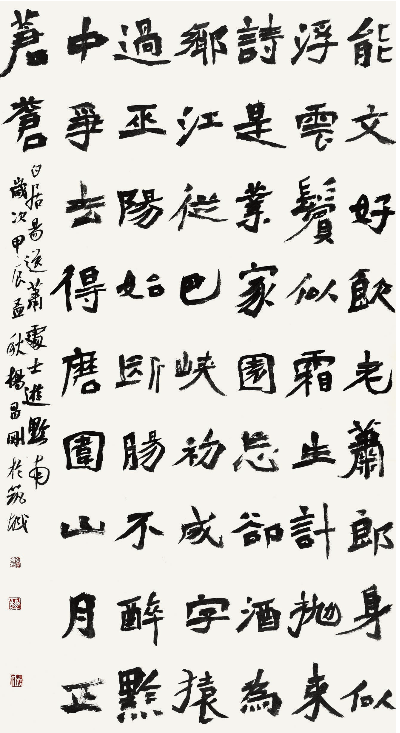 能文好飲老蕭郎身似
浮雲鬢似霜生計拋来
詩是業家園忘卻酒為
鄉江從巴峽初成字猿
過巫陽始断腸不醉黔
中爭去得磨圍山月正
蒼蒼
白居易送蕭處士遊黔南
歲次甲辰孟秋楊昌剛於筑城